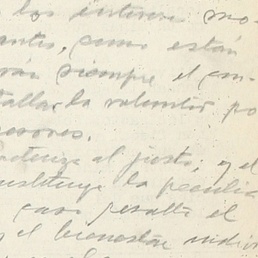 los interes mo-
antes, como están
rán siempre el con-
tallar la voluntad po
esores.
al justo; y el
la peculia
caso resulta el
y el bienestar indivi